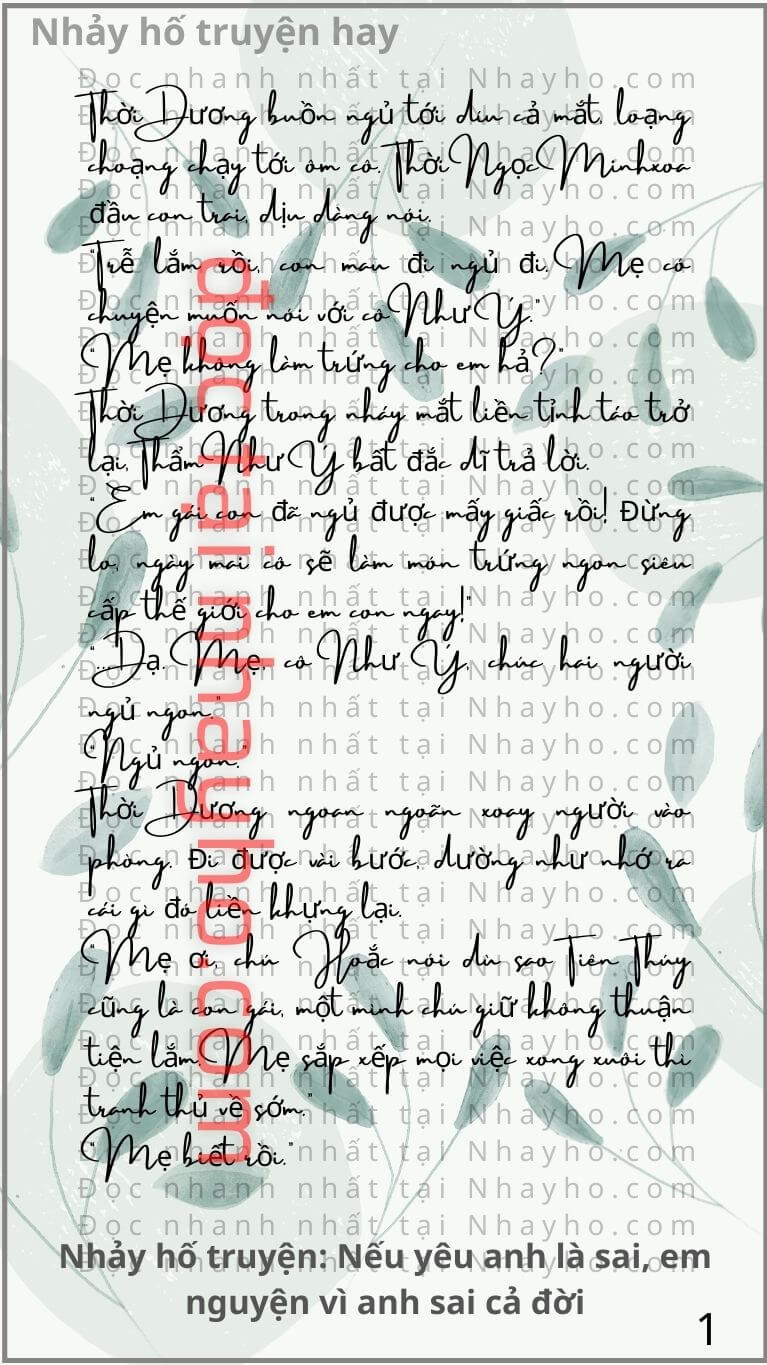 Nhảy hố truyện hay
Đọc nhanh nhất tại Nhayho.com
Thời Dương buồn ngủ tới díu cả mắt, loạng
choạng chạy tới ôm cô. Thời Ngọc Minh xoa
đầu con trai, dịu dàng nói.
"Trễ lắm rồi, con mau đi ngủ đi. Mẹ có
chuyện muốn nói với cô Như Ý."
"Mẹ không làm trứng cho em hả?"
Thời Dương trong nháy mắt liền tỉnh táo trở
lại, Thẩm Như Ý bất đắc dĩ trả lời.
"Em gái con đã ngủ được mấy giấc rồi! Đừng
lo, ngày mai cô sẽ làm món trứng ngon siêu
cấp thế giới cho em con ngay!"
"...Dạ. Mẹ, cô Như Ý, chúc hai người
ngủ ngon."
"Ngủ ngon."
Thời Dương ngoan ngoãn xoay người vào
phòng. Đi được vài bước, dường như nhớ ra
cái gì đó liền khựng lại.
"Mẹ ơi, chú Hoắc nói dù sao Tiên Thúy
cũng là con gái, một mình chú giữ không thuận
tiện lắm. Mẹ sắp xếp mọi việc xong xuôi thì
tranh thủ về sớm."
"Mẹ biết rồi."
đọc tại nhayho.com
Nhảy hố truyện: Nếu yêu anh là sai, em
nguyện vì anh sai cả đời
1